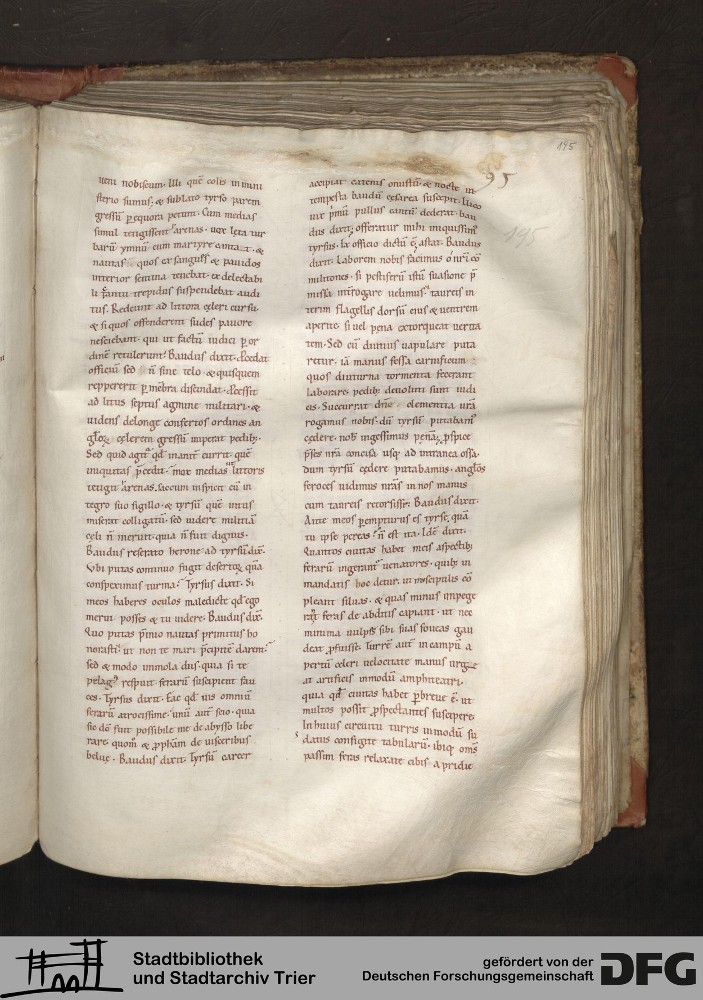 195
95
195
ueni nobiscum. Illi quē colis in mini
sterio sumus. & sublato tyrso parem
gressū p equora petunt. Cum medias
simul tetigissent arenas. uox leta tur
barū ymnū cum martyre canta t. &
nautas quos exsangues & pauidos
interior sentina tenebat. ex delectabi
li trepidus suspendebat audi
tus. Redeunt ad littora celeri cursu.
& si quos offenderent sudes pauore
nesciebant. qui ut factū iudici p or
dinē retulerunt. Baudus dixit. p̄cedat
officiū sed n̄ sine telo. & quisquem
reppererit p mēbra discindat. p̄cessit
ad litus septus agmine militari. &
uidens delonge consertos ordines an
gl̄oꝝ. celerem gressū imperat pedibꝫ.
Sed quid agit qd inanit currit. quē
iniquitas p̄cedit. mox medias ut littoris
tetigit arenas. saccum inspicit cū in
tegro suo sigillo. & tyrsū quē intus
miserat colligatū. sed uidere militiā
celi n̄ meruit. quia n̄ fuit dignus.
Baudus reserato berone ad tyrsū dix̄.
Vbi putas continuo fugit desertoꝝ quā
conspeximus turma. Tyrsus dixit. Si
meos haberes oculos maledicte qd ego
merui posses & tu uidere. Baudus dix̄.
Quo putas p̄mio nautas primitus ho
norasti. ut non te mari p̄cipitē darent.
sed & modo immola diis. quia si te
pelag' respuit. ferarū suscipient fau
ces. Tyrsus dixit. Fac qd uis omniū
ferarū atrocissime. unū aut̄ scio. quia
sic dō fuit possibile me de abysso libe
rare. quom̄ & ꝓph̄am de uisceribus
belue. Baudus dixit. Tyrsū carcer
accipiat catenis onustū. & nocte in
tempesta baudū cesarea suscepit. luco
uix p̄mū pullus cantū dederat. bau
dus dixit. offeratur mihi iniquissim'
tyrsus. Ex officio dictū ē. astat. Baudus
dixit. Laborem nobis facimus o uri cō
militones. si pestiferū istū suasione p̄
missa int̄rogare uelimus. taureis in
terim flagellis dorsū eius & uentrem
aperite. si uel pena extorqueat uerita
tem. Sed cū diutius uapulare puta
retur. iā manus fessa carnificum
quos diuturna tormenta fecerant
laborare. pedibꝫ deuoluti sunt iudi
cis. Succurrat dn̄e clementia ur̄a
rogamus nobis. dū tyrsū putabam'
cedere. nob̄ ingessimus penā. ꝓspice
p̄ses nr̄a concisa usqꝫ ad intranea ossa.
dum tyrsū cedere putabamus. anglōs
feroces uidimus nr̄as in nos manus
cum taureis retorsisse. Baudus dixit.
Arte meos p̄empturus es tyrse. quā
tu ipse pereas. n̄ est ita. Idē dixit.
Quantos ciuitas habet meis aspectibꝫ
ferarū ingerunt uenatores. quibꝫ in
mandatis hoc detur. ut muscipulis cō
pleant siluas. & quas minus impege
rit feras de abditis capiant. ut nec
minima uulpis sibi suas foueas gau
deat ꝓfuisse. Turrē aut̄ in campū a
pertū celeri uelocitate manus urgeat
artificis in modū amphiteatri.
quia qd̄ ciuitas habet p̄breue ē. ut
multos possit ꝓspectantes suscipere.
In huius circuitu turris in modū su
datus configite tabularū. ibiqꝫ om̄s
passim feras relaxate cibis a pridie
Stadtbibliothek
und Stadtarchiv Trier
gefördert von der
Deutschen Forschungsgemeinschaft
DFG